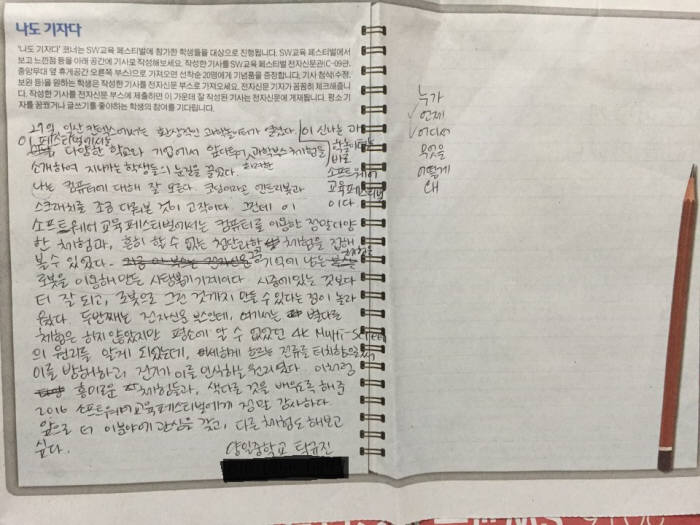 나도 기자다
'나도 기자다' 코너는 SW교육 페스티벌에 참가한 학생들을 대상으로 진행됩니다. SW교육 페스티벌에서
보고 느낀점 등을 아래 공간에 기사로 작성해보세요. 작성한 기사를 SW교육 페스티벌 전자신문관(C-09관,
중앙무대 옆 휴게공간 오른쪽 부스)으로 가져오면 선착순 20명에게 기념품을 증정합니다. 기사 첨삭(수정,
보완 등)을 원하는 학생은 작성한 기사를 전자신문 부스로 가져오세요. 전자신문 기자가 꼼꼼히 체크해줍니
다. 작성한 기사를 전자신문 부스에 제출하면 이 가운데 잘 작성된 기사는 전자신문에 게재됩니다. 평소 기
자를 꿈꿨거나 글쓰기를 좋아하는 학생의 참여를 기다립니다.
29일 일산 킨텍스에서는 환상적인 과학놀이터가 열렸다. 이 신나는 과
학놀이터는
바로
소프트웨어
교육페스티벌
이다
이 페스티벌에서는
다양한 학교나 기업에서 앞다투어 과학부스 체험을
소개하여 지나가는 학생들의 눈길을 끌었다.
나는 컴퓨터에 대해 잘 모른다. 코딩이라곤 엔트리봇과
스크래치를 조금 다뤄본 것이 고작이다. 그런데 이
소프트웨어 교육페스티벌에서는 컴퓨터를 이용한 정말 다양
한 체험과, 흔히 할 수 없는 첨단과학 체험을 접해
볼 수 있었다. 기억에 남는
로봇을 이용해 만든 사탕뽑기 기계이다. 시중에 있는 것보다
더 잘 되고, 로봇으로 그런 것까지 만들 수 있다는 점이 놀라
웠다. 두번째는 전자신문 부스인데, 여기서는 별다른
체험은 하지 않았지만 평소에 알 수 없었던 4k Multi-Screen
의 원리를 알게 되었는데, 미세하게 흐르는 전류를 터치함으로써
이를 방해하고, 기기가 이를 인식하는 원리였다. 이처럼
흥미로운 체험들과, 색다른 것을 배우도록 해준
2016 소프트웨어교육페스티벌에게 정말 감사하다.
앞으로 더 이 분야에 관심을 갖고, 다른 체험도 해보고
싶다.
양일중학교 탁규진
누가
언제
어디서
무엇을
어떻게
왜